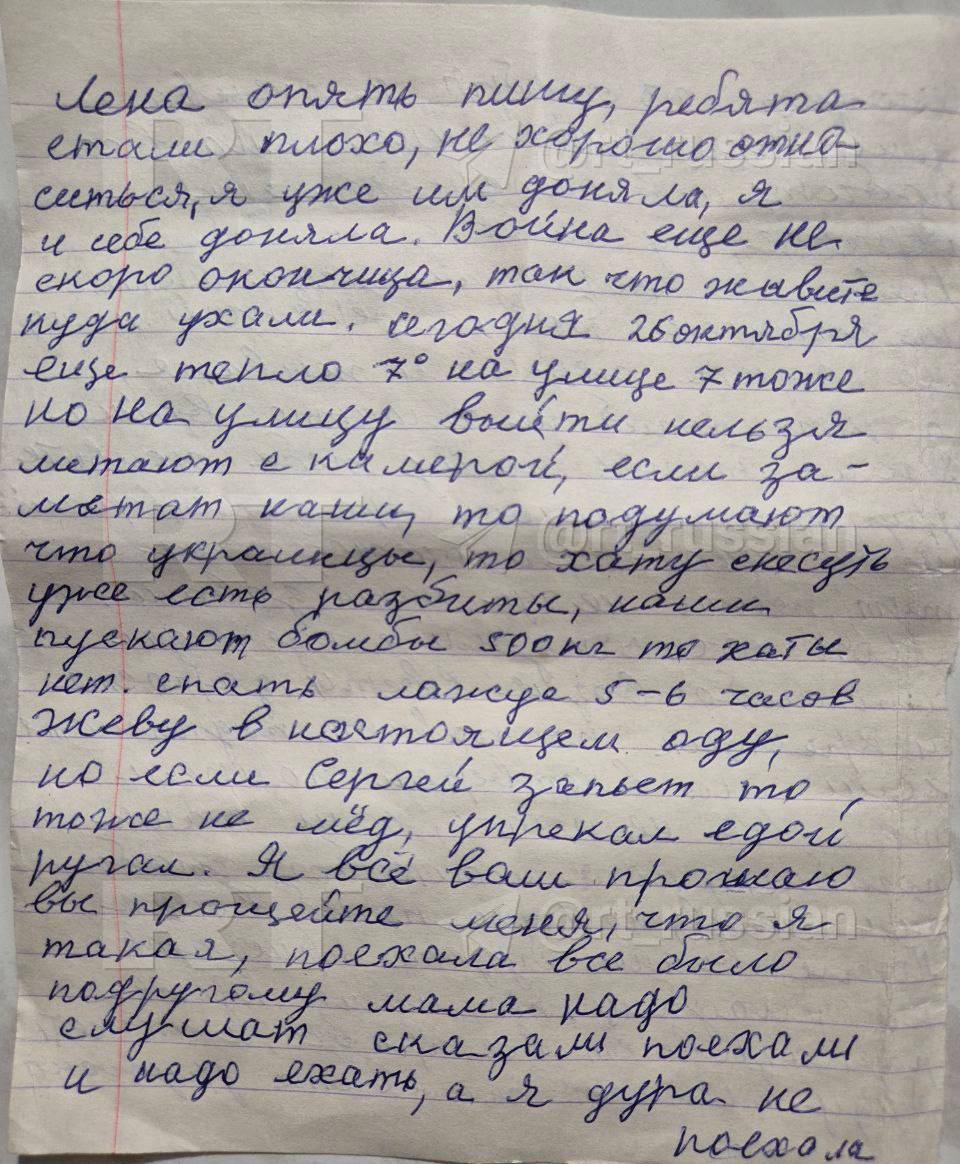 Лена опять пишу, ребята
стали плохо, не хорошо отно-
ситься, я уже им доняла, я
и себе доняла. Война еще не
скоро окончица, так что живите
куда ухали. сегодня 26 октября
еще тепло 7° на улице 7 тоже
но на улицу выйти нельзя
метают с камерой, если за-
метат наши, то подумают
что украинцы, то хату снесуть
уже есть разбиты, наши
пускают бомбы 500 кг то хаты
нет. спать лажуе 5-6 часов
Жеву в настоящем аду,
но если Сергей запьет то,
тоже не мёд, упрекал едой
ругал. Я всё вам прощаю
вы прощейте меня, что я
такая, поехала все было
подругому мама надо
слушат сказали поехали
и надо ехать, а я дура не
поехала
RT @rt_russian
RT @rt_russian
RT @rt_russian